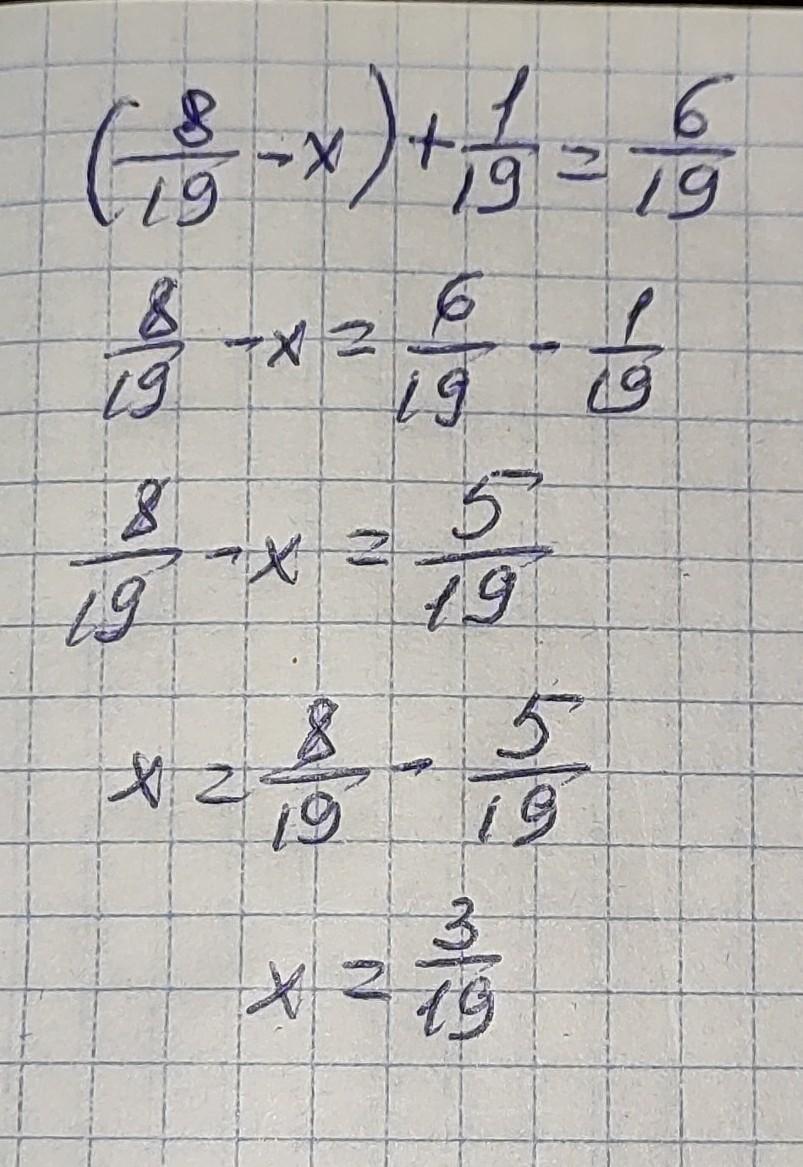 (8/19 - x) + 1/19 = 6/19
8/19 - x = 6/19 - 1/19
8/19 - x = 5/19
x = 8/19 - 5/19
x = 3/19